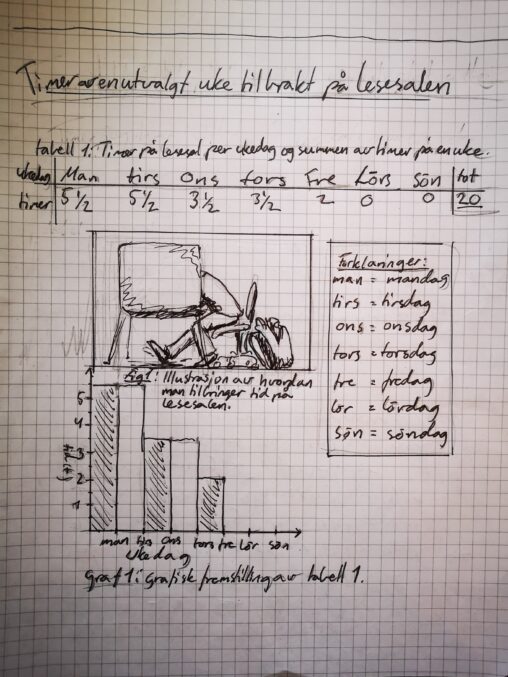 Timer av en utvalgt uke tilbrakt på lesesalen
tabell 1: Timer på lesesal per ukedag og summen av timer på en uke.
ukedag Man tirs Ons tors Fre Lörs Sön tot
timer 5 1/2 5 1/2 3 1/2 3 1/2 2 0 0 20
Forklaringer:
man = mandag
tirs = tirsdag
ons = onsdag
tors = torsdag
fre = fredag
lör = lördag
sön = söndag
Fig 1: Illustrasjon av hvordan
man tilbringer tid på
lesesalen.
5
4
3
2
1
tid (t)
man tirs ons tors fre lör sön
Ukedag
Graf 1: Grafisk fremstilling av tabell 1.